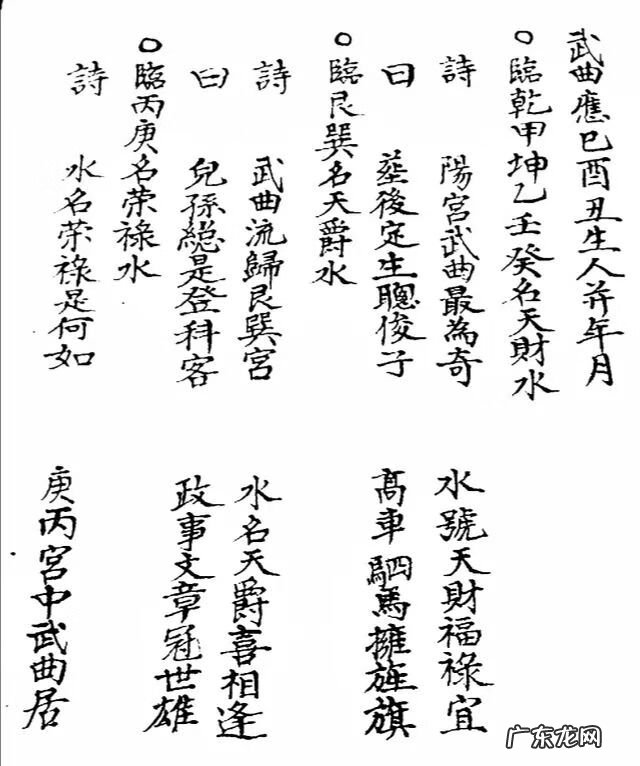 武曲應巳酉丑生人并年月
○臨乾甲坤乙壬癸名天財水
詩 陽宮武曲最為奇 水號天財福祿宜
曰 塟後定生聰俊子 高車駟馬擁旌旗
○臨艮巽名天爵水
詩 武曲流歸艮巽宮 水名天爵喜相逢
曰 兒孫縂是登科客 政事文章冠世雄
○臨丙庚名荣祿水
詩 水名荣祿是何如 庚丙宮中武曲居
广东龙网